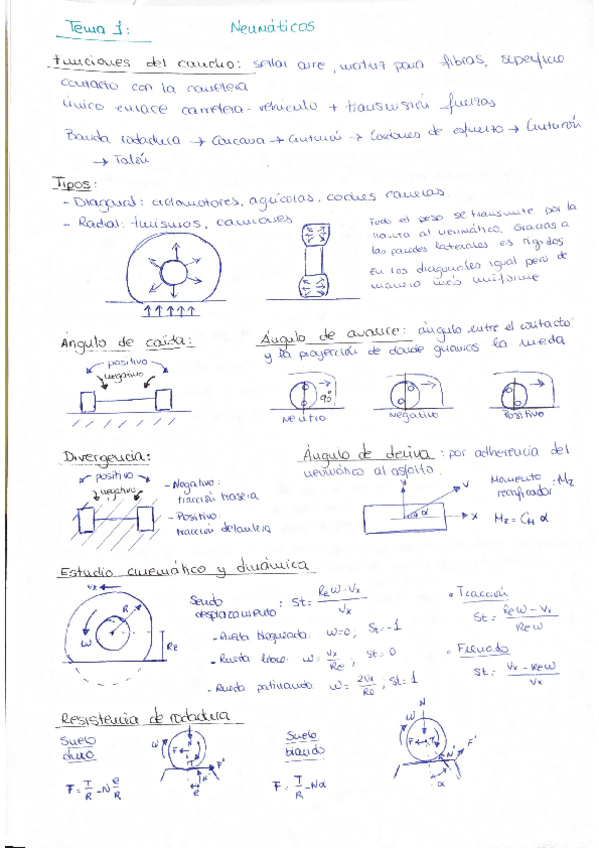 Tema 1: Neumáticos
Funciones del caucho: sellar aire, matriz para fibras, superficie
contacto con la carretera
Único enlace carretera-vehículo + transmisión fuerzas
Banda rodadura → Carcasa → Cinturón → Cordones de esfuerzo → Cinturón
→ Talón
Tipos:
- Diagonal: ciclomotores, agrícolas, coches carreras.
- Radial: turismos, camiones
Todo el peso se transmite por la
llanta al neumático. Gracias a
las paredes laterales es rígidos
En los diagonales igual pero de
manera más uniforme
Ángulo de caída:
positivo
negativo
Ángulo de avance: ángulo entre el contacto
y la proyección de donde guiamos la rueda
90°
Neutro
Negativo
Positivo
Divergencia:
positivo
negativo
- Negativo:
tracción trasera
- Positivo:
tracción delantera
Ángulo de deriva: por adherencia del
neumático al asfalto.
y
v
α
x
Momento
rectificador: Mz
Mz = CM α
Estudio cinemático y dinámica
Vx
R
ω
Re
Seudo
desplazamiento: St = (Reω - Vx) / Vx
- Rueda bloqueada: ω=0, St=-1
- Rueda libre: ω = Vx/Re, St=0
- Rueda patinando: ω = 2Vx/Re, St=1
• Tracción
St = (Reω - Vx) / Reω
• Frenado
St = (Vx - Reω) / Vx
Resistencia de rodadura
Suelo
duro
F = T/R - N e/R
ω
N
F
T
F'
N'
e
Suelo
blando
F = T/R - Nα
ω
N
F
T
F'
N'
α